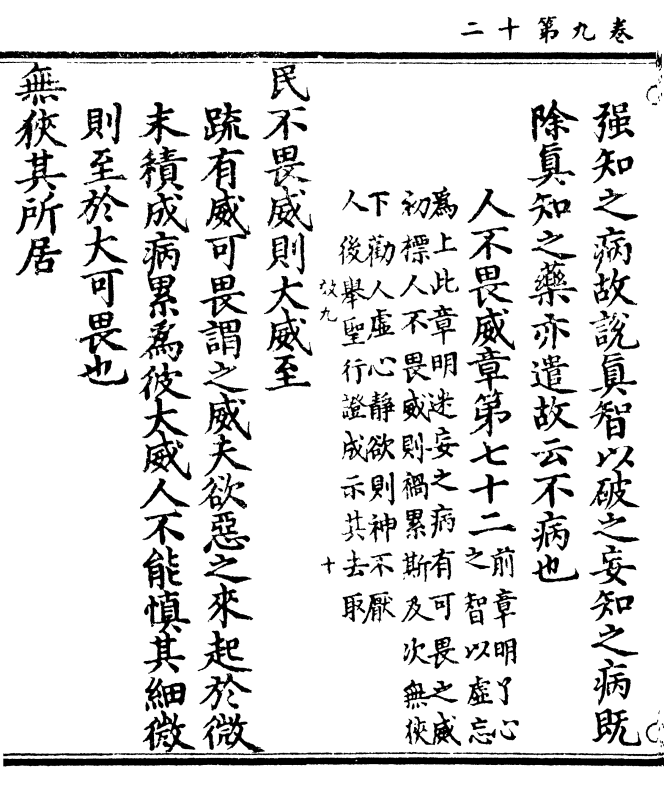 卷九第十二
强知之病故說眞智以破之妄知之病既
除眞知之藥亦遣故云不病也
人不畏威章第七十二
前章明了心
之智以虛忘
爲上此章明迷妄之病有可畏之威
初標人不畏威則禍累斯及次無狹
下勸人虛心静欲則神不厭
人後舉聖行證成示其去取
故九
十
民不畏威則大威至
踈有威可畏謂之威夫欲惡之來起於微
末積成病累爲彼大威人不能慎其細微
則至於大可畏也
無狹其所居